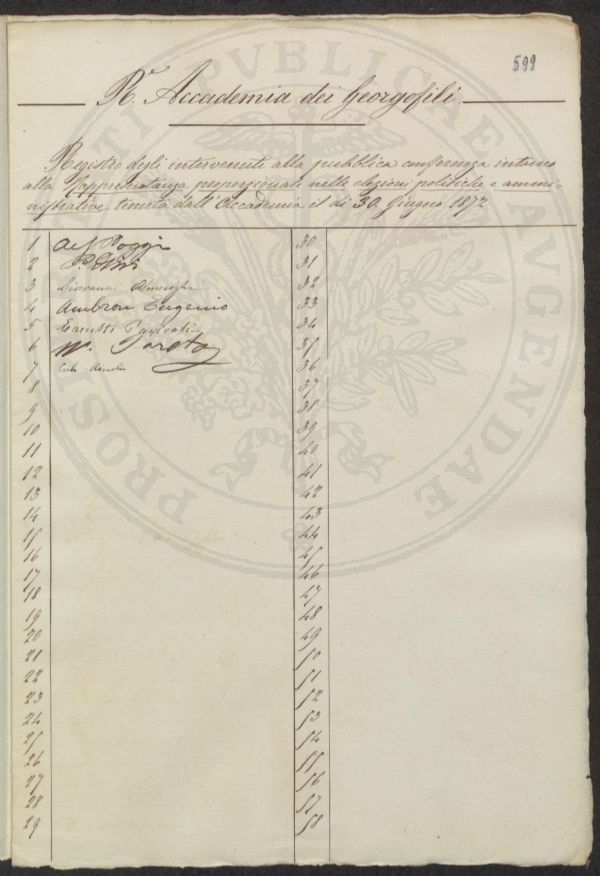 599
R.e Accademia dei Georgofili
Registro degli intervenuti alla pubblica conferenza intorno
alla Rappresentanza proporzionale nelle elezioni politiche e ammi-
nistrative tenuta dall'Accademia il dì 30. Giugno 1872
PROSPERITATI PVBLICAE AVGENDAE
1 Poggi
2
3 Giovanni
4 Ambron Eugenio
5
6 Pareto
7
8
9
10
11
12
13
14
15
16
17
18
19
20
21
22
23
24
25
26
27
28
29
30
31
32
33
34
35
36
37
38
39
40
41
42
43
44
45
46
47
48
49
50
51
52
53
54
55
56
57
58